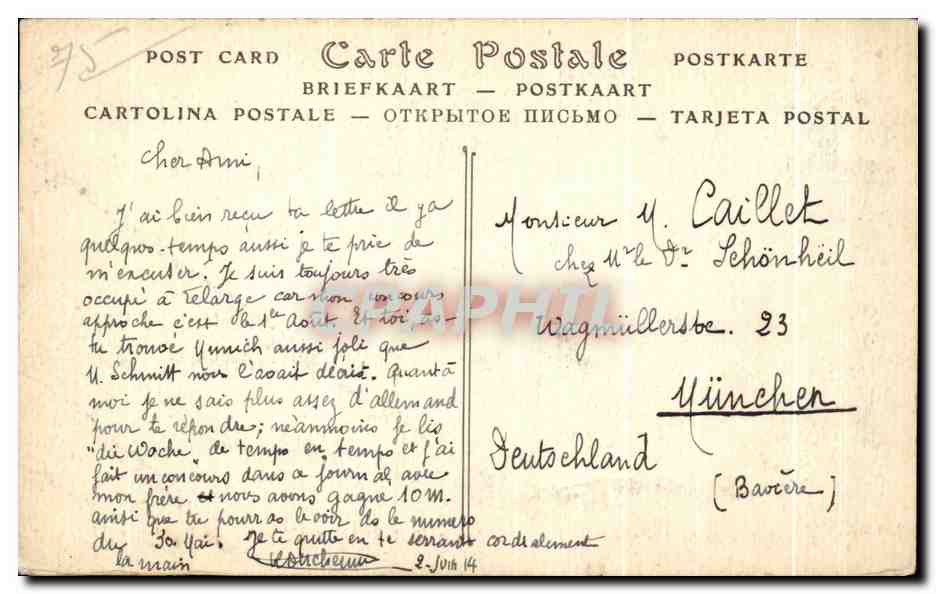 75
POST CARD Carte Postale POSTKARTE
BRIEFKAART — POSTKAART
CARTOLINA POSTALE — ОТКРЫТОЕ ПИСЬМО — TARJETA POSTAL
Cher Ami,
J'ai bien reçu ta lettre il y a
quelques-temps aussi je te prie de
m'excuser. Je suis toujours très
occupé à car mon concours
approche c'est le 1er Août. Et toi, as-
tu trouvé Munich aussi joli que
M. Schmitt nous l'avait décrit. Quant à
moi je ne sais plus assez d'allemand
pour te répondre; néanmoins je lis
"die Woche" de temps en temps et j'ai
fait un concours dans ce journal avec
mon frère et nous avons gagné 10 m.
ainsi que tu pourras le voir ds le numéro
du 30 Mai. Je te quitte en te serrant cordialement
la main
2-Juin 14
Monsieur M. Caillet
chez Mr le Dr Schönheil
Wagmüllerstre. 23
München
Deutschland
(Bavière)
DELCAMPHIL